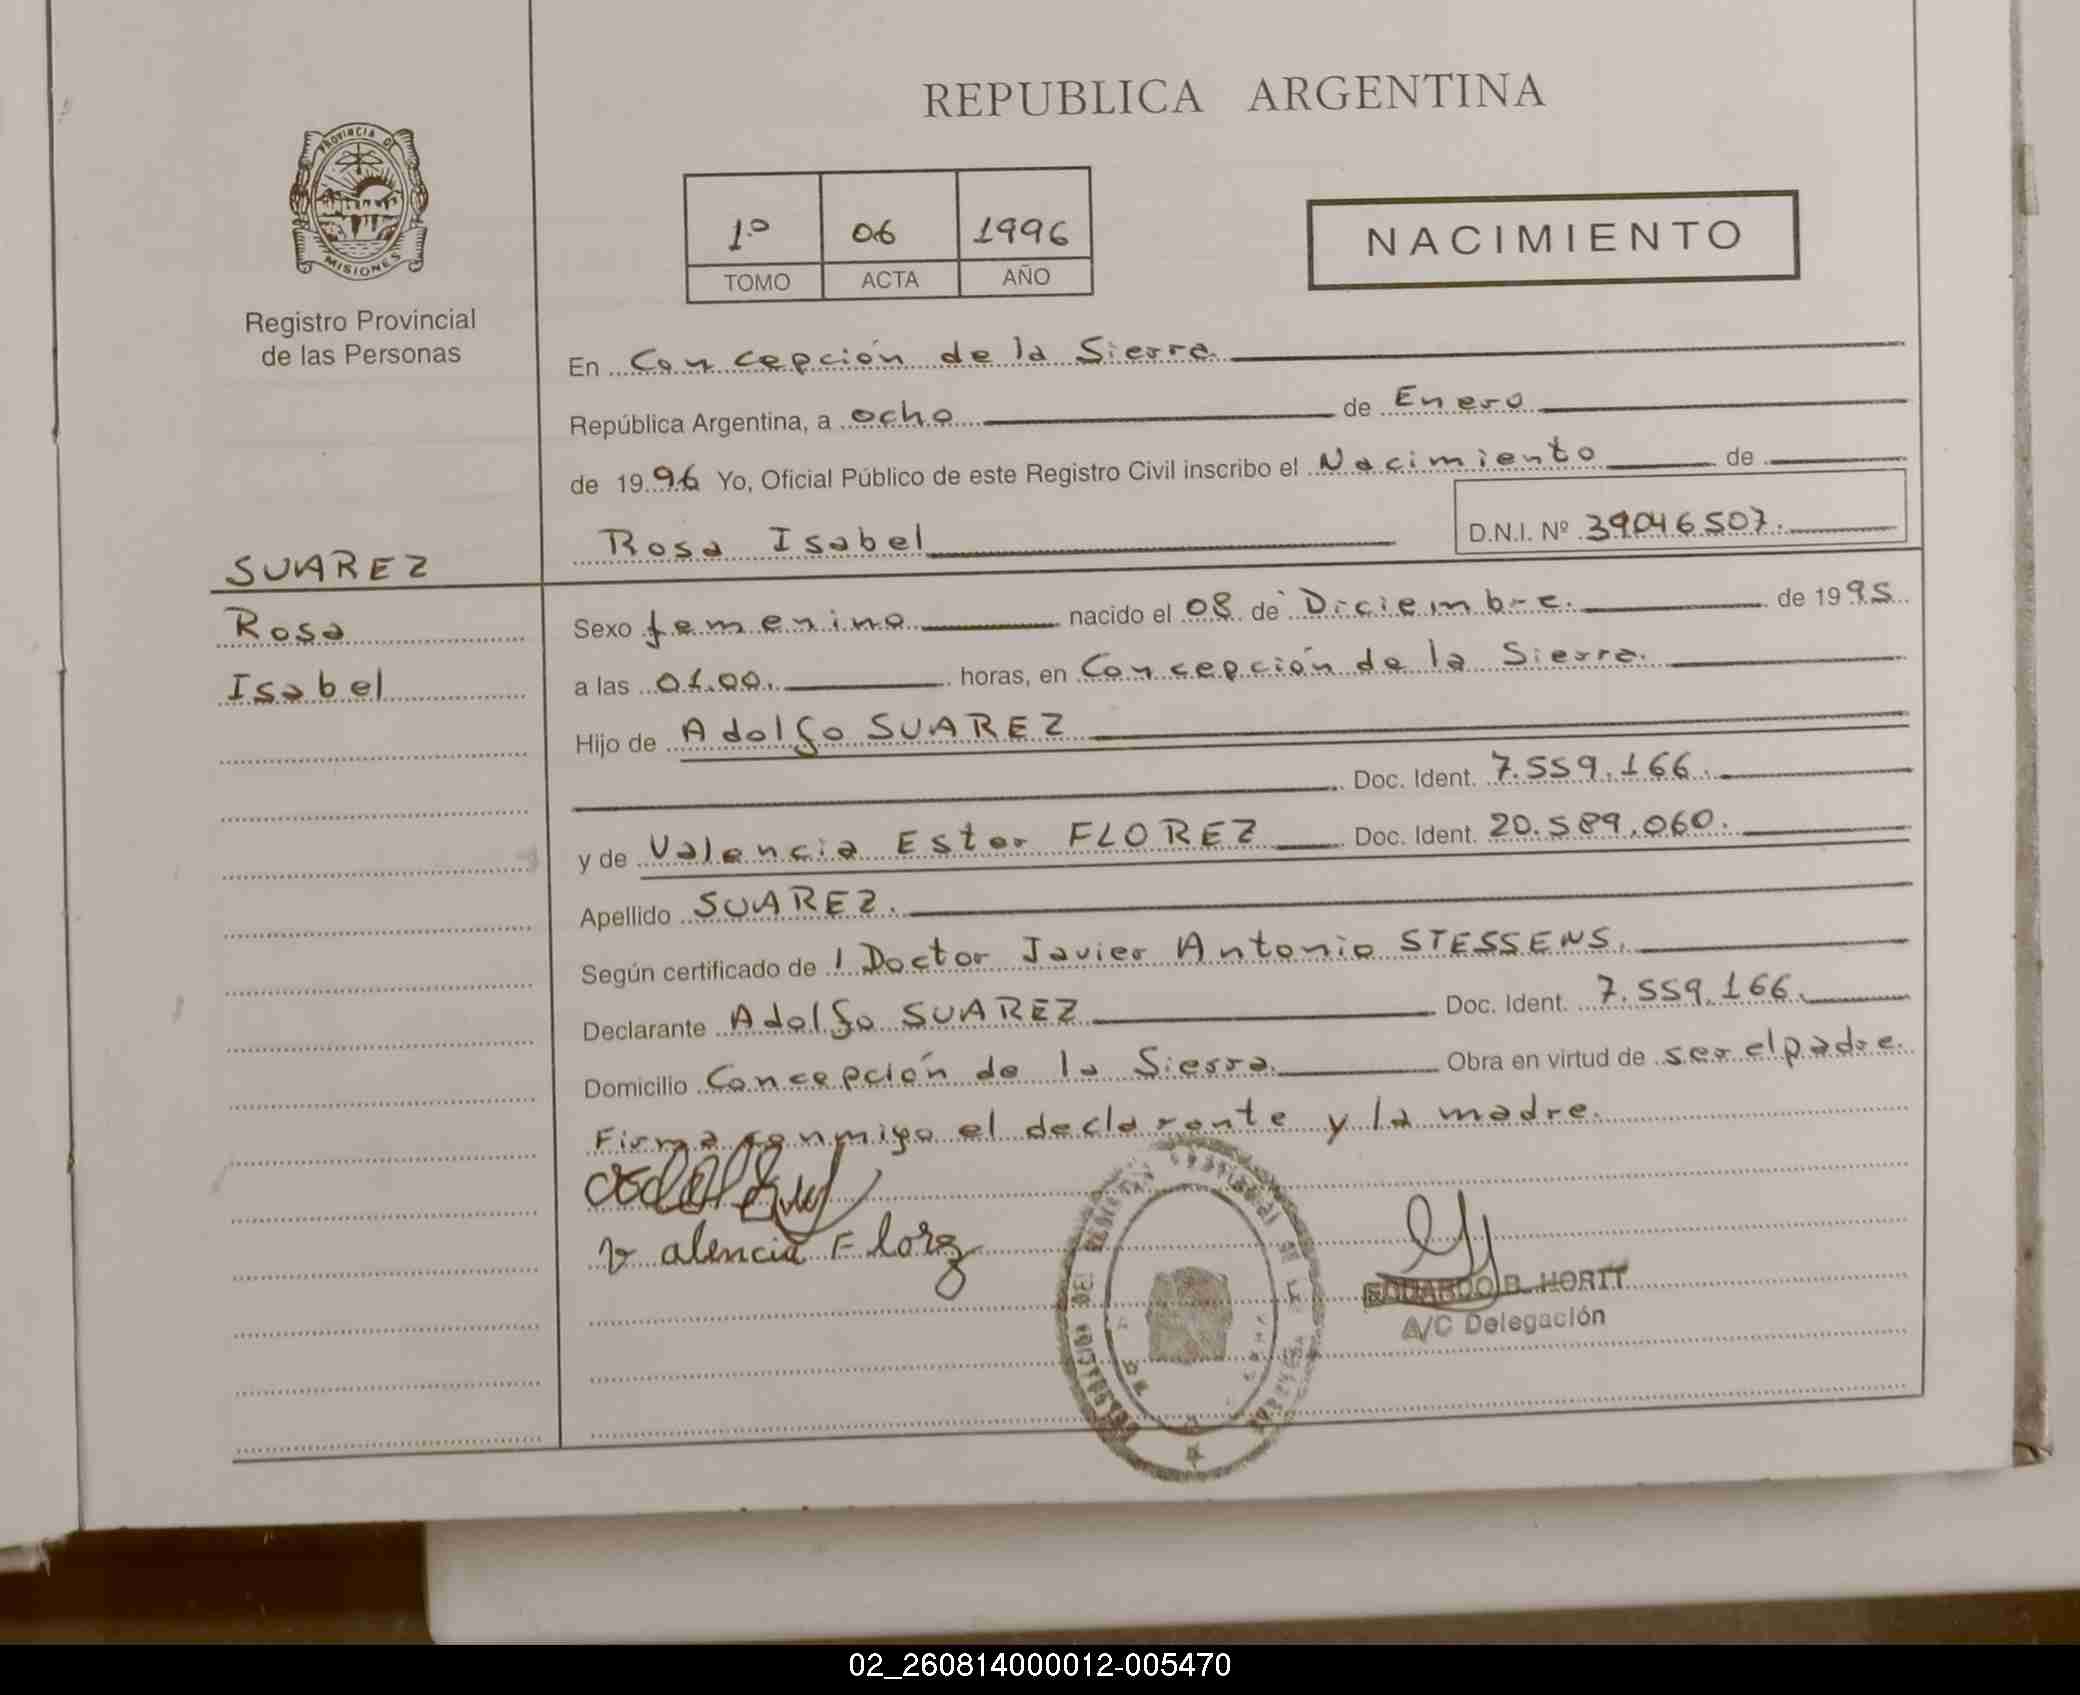 REPUBLICA ARGENTINA
PROVINCIA DE
MISIONES
Registro Provincial
de las Personas
1º 06 1996
TOMO ACTA AÑO
NACIMIENTO
En Concepción de la Sierra
República Argentina, a ocho de Enero
de 1996 Yo, Oficial Público de este Registro Civil inscribo el Nacimiento de
Rosa Isabel D.N.I. Nº 39046507.
SUAREZ
Rosa
Isabel
Sexo femenino nacido el 08 de Diciembre. de 1995
a las 01.00. horas, en Concepción de la Sierra.
Hijo de Adolfo SUAREZ
Doc. Ident. 7.559.166.
y de Valencia Ester FLOREZ Doc. Ident. 20.589.060.
Apellido SUAREZ.
Según certificado de l Doctor Javier Antonio STESSENS.
Declarante Adolfo SUAREZ Doc. Ident. 7.559.166.
Domicilio Concepción de la Sierra. Obra en virtud de ser el padre.
Firma conmigo el declarante y la madre.
Valencia Florez
EDUARDO B. HORTT
A/C Delegación
02_260814000012-005470